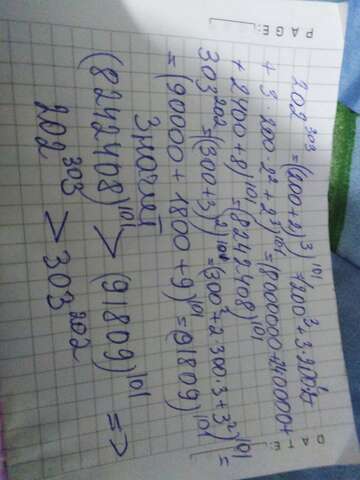 PAGE: DATE:
202³⁰³=(200+2)³)¹⁰¹=(200³+3·200²·2+
+3·200·2²+2³)¹⁰¹=(8000000+240000+
+2400+8)¹⁰¹=(8242408)¹⁰¹
303²⁰²=(300+3)²)¹⁰¹=(300²+2·300·3+3²)¹⁰¹=
=(90000+1800+9)¹⁰¹=(91809)¹⁰¹
Значит
(8242408)¹⁰¹>(91809)¹⁰¹ =>
202³⁰³>303²⁰²